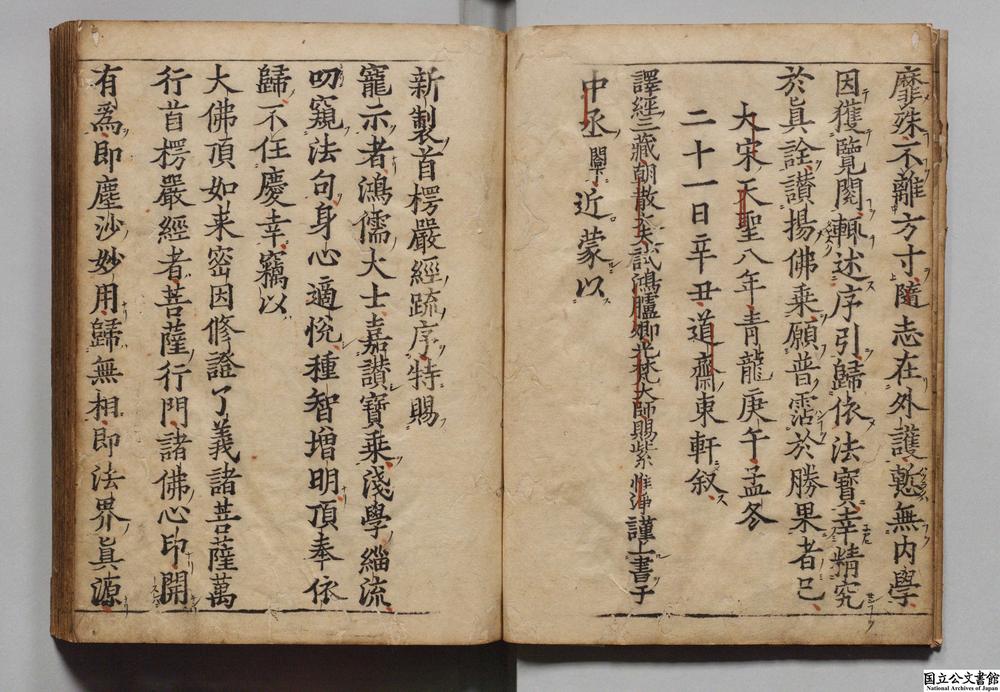 靡殊不離方寸隨志在外護慙無内學
因獲覽閱輙述序引歸依法寶幸精究
於眞詮讃揚佛乘願普霑於勝果者已
大宋天聖八年青龍庚午孟冬
二十一日辛丑道齋東軒叙
譯經三藏朝散大夫試鴻臚卿光梵大師賜紫惟淨謹上書于
中丞閣下近蒙以
新製首楞嚴經疏序特賜
寵示者鴻儒大士嘉讃寶乘淺學緇流
叨窺法句身心適悅種智增明頂奉依
歸不任慶幸竊以
大佛頂如来密因修證了義諸菩薩萬
行首楞嚴經者菩薩行門諸佛心印開
有爲即塵沙妙用歸無相即法界眞源
国立公文書館
National Archives of Japan